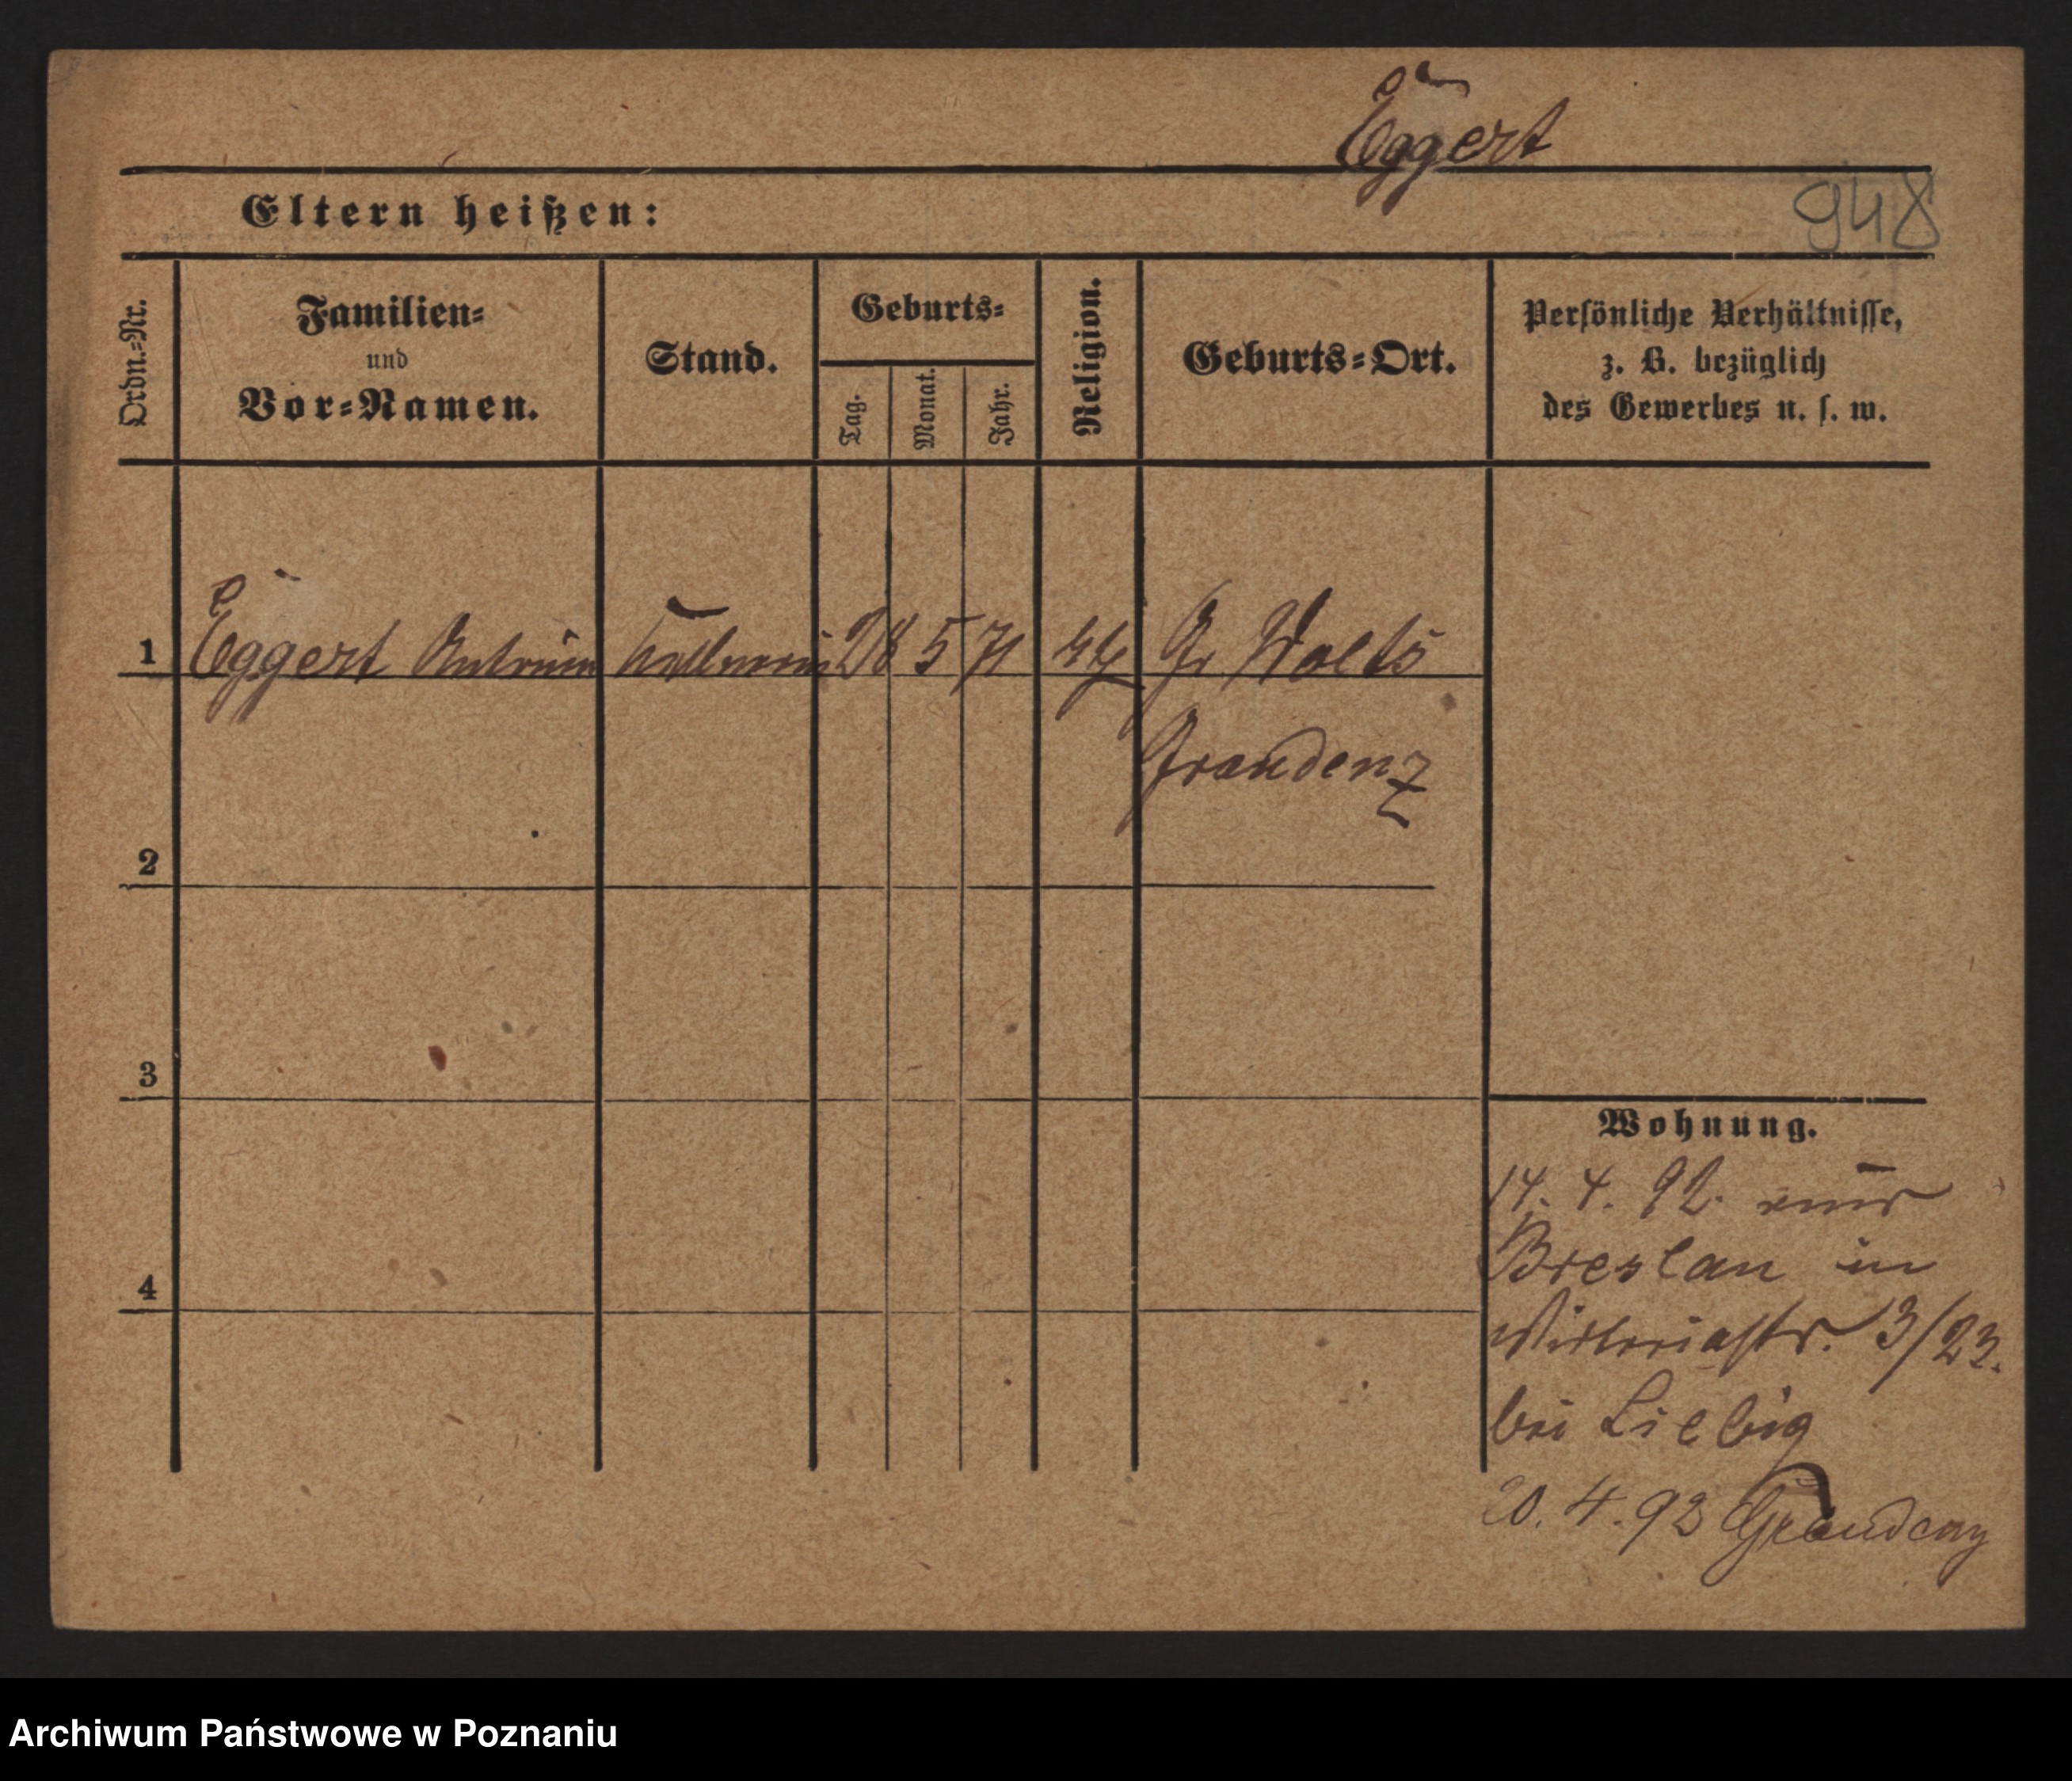 Eggert
Eltern heißen:
948
Ordn.-Nr.
Familien-
und
Vor-Namen.
Stand.
Geburts-
Tag.
Monat.
Jahr.
Religion.
Geburts-Ort.
Persönliche Verhältnisse,
z. B. bezüglich
des Gewerbes u. s. w.
1 Eggert 28 5 71 Gr Wolts
Graudenz
2
3
4
Wohnung.
14. 4. 92.
Breslau in
Victoriastr. 3/23.
bei Liebig
20. 4. 93 Graudenz
Archiwum Państwowe w Poznaniu